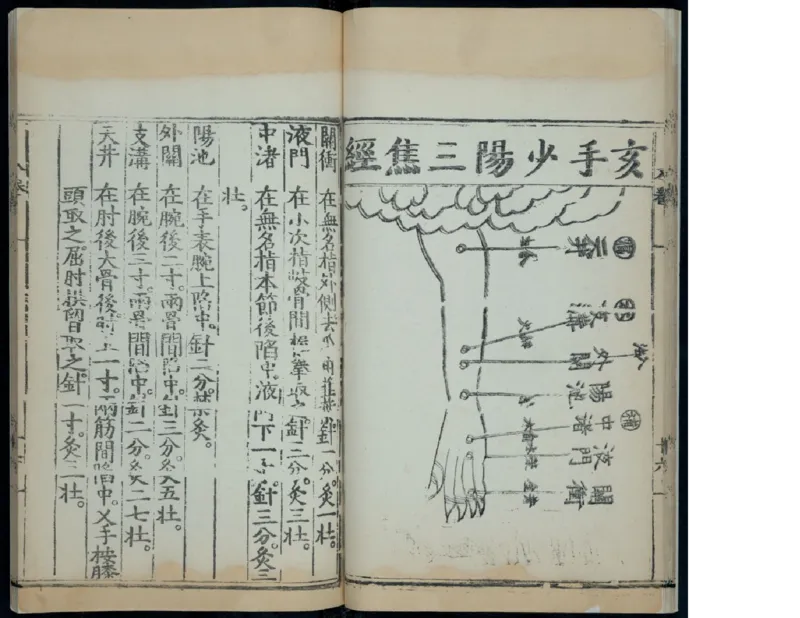 亥手少陽三焦經
井
支溝
外關
陽池
中渚
液門
關衝
關衝 在無名指外側去 針一分。灸一壯。
液門 在小次指歧骨間 針二分。灸三壯。
中渚 在無名指本節後陷中。液門下一寸。針三分。灸三
壯。
陽池 在手表腕上陷中。針二分。禁灸。
外關 在腕後二寸。兩骨間陷中。針三分。灸五壯。
支溝 在腕後三寸。兩骨間陷中。針二分。灸二七壯。
天井 在肘後大骨後肘上一寸。兩筋間陷中。叉手按膝
頭取之。屈肘拱胸取之。針一寸。灸三壯。